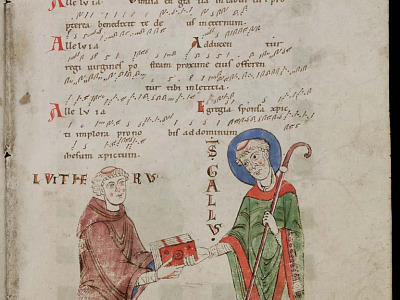 Alleluia gratia in labiis tuis pro
pterea benedixit te deus in eternum.
Alleluia Adducen tur
regi virgines po steam proxime eius offeren
tur tibi in letitia.
Alleluia Egregia sponsa xpic
ti implora pro no bis ad dominum
xpictum
LVITHERVS
S GALLVS